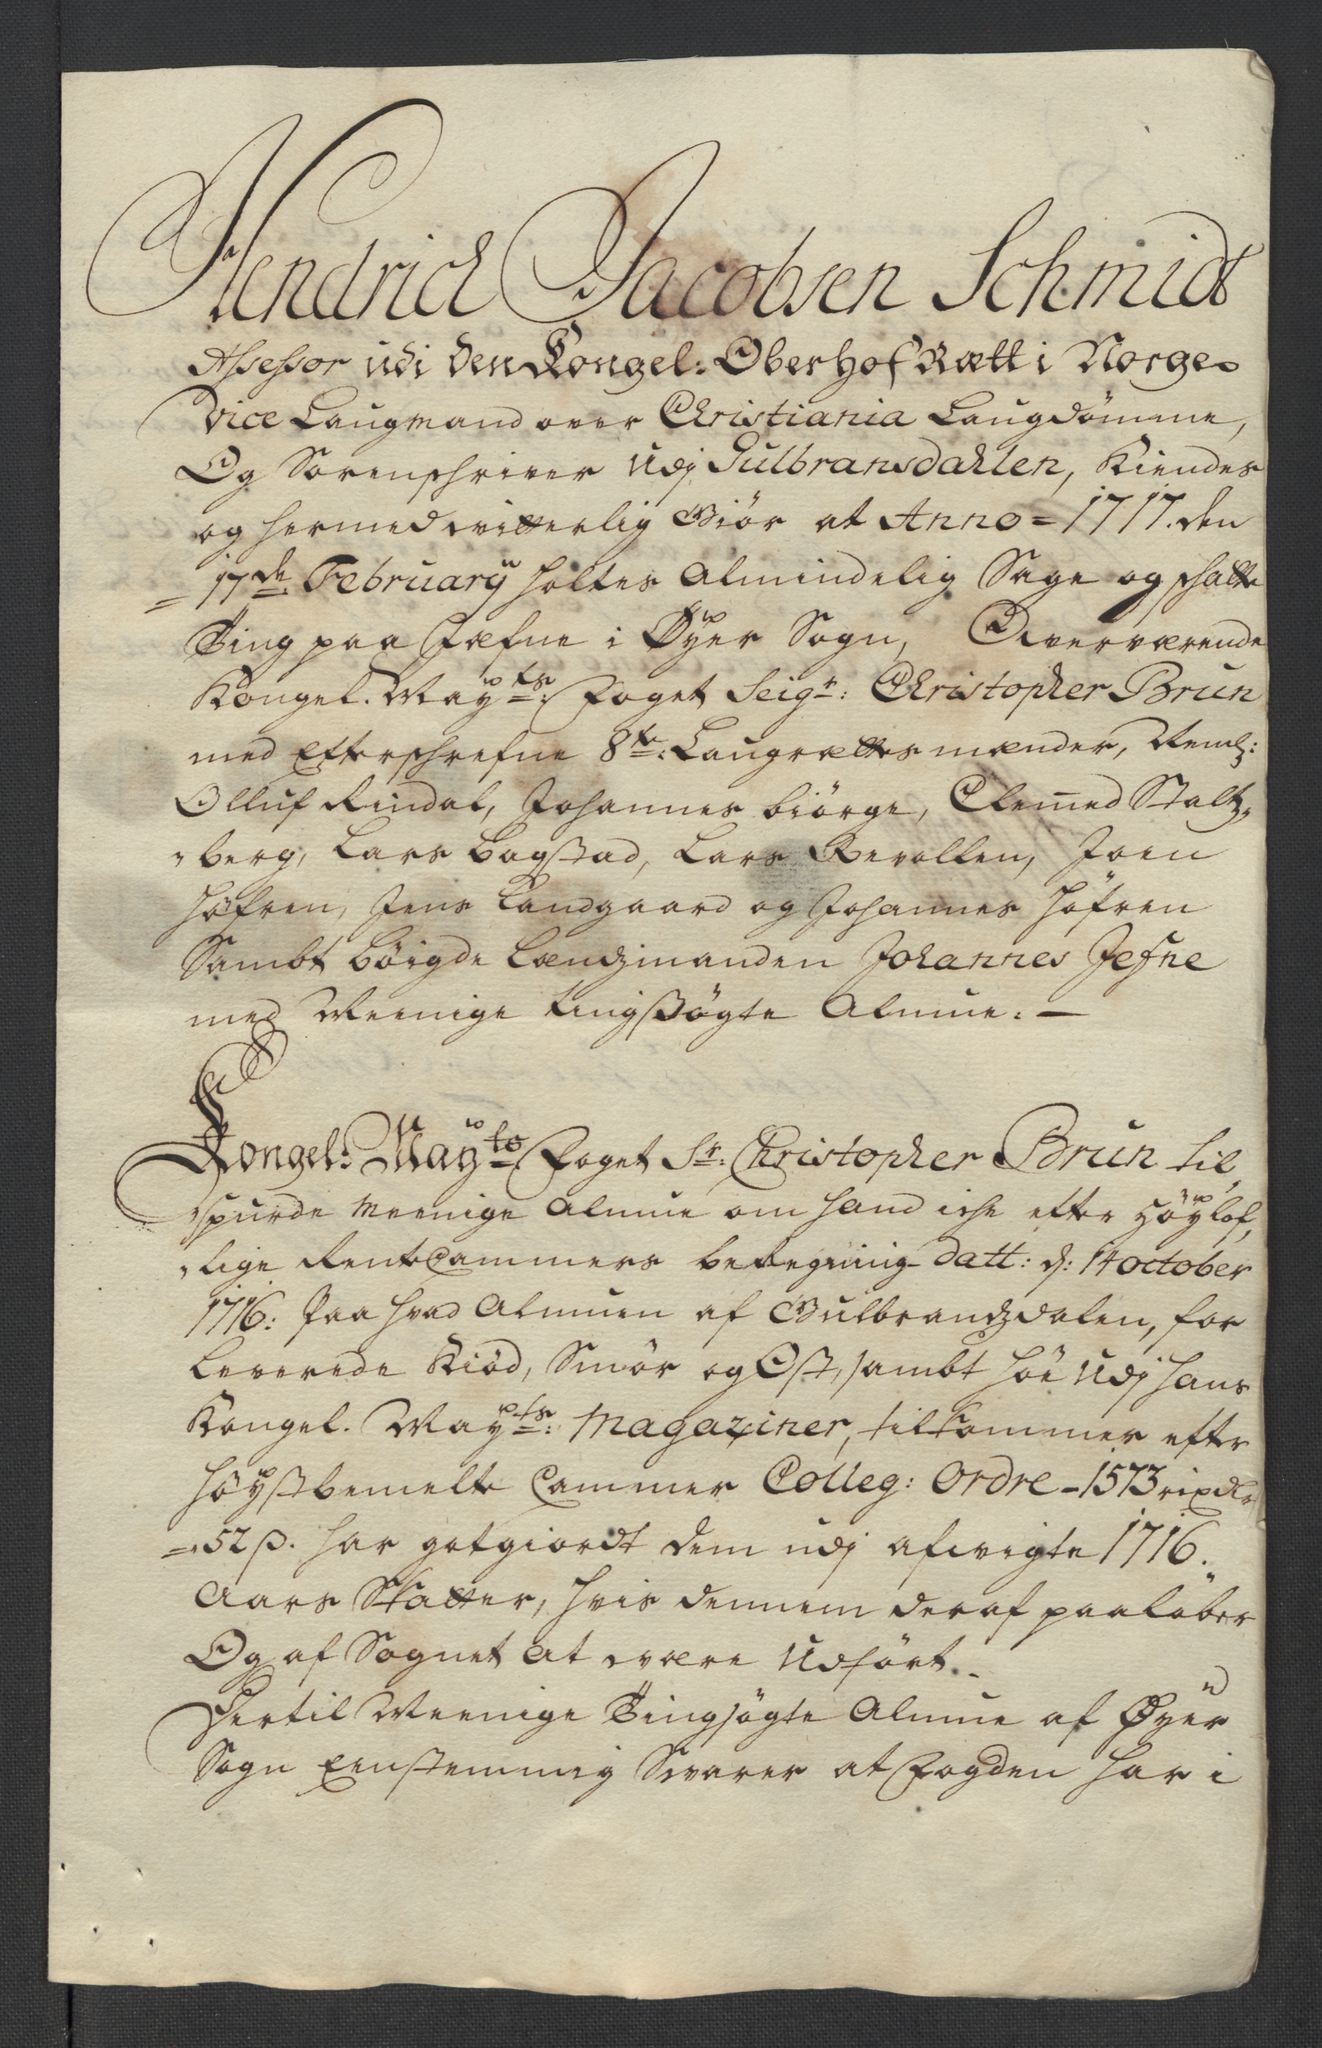 Hendrich Jacobsen Schmidt
Assessor udi den Kongel: Oberhof Rætt i Norge
vice Laugmand over Christiania Laugdømme,
Og Sorenschriver udj Gulbransdahlen, Kiendes
og hermed vitterlig Giör at Anno = 1717. den
= 17de February holtes Almindelig Sage og schatte
Ting paa Jæfne i Øyer Sogn, Overværende
Kongel. Mayts: Foget Seigr: Christopher Brun
med Efterschrefne 8te: Laugrættes mænder, Neml:
Olluf Rindal, Johannes Biörge, Clemed Stalz,,
,,berg, Lars Bogstad, Lars Revollen, Joen
Höfren, Jens Landgaard og Johannes Höfren
Sambt böigde Lendzmanden Johannes Jefne
med Meenige tingsøgte Almue. —
Kongel: Mayts Foget Sr: Christopher Brun til,,
,,spurde Meenige Almue om hand iche efter Höylof,,
,,lige RentCammers beregning datt: d: 14 october
1716: Paa hvad Almuen af Gulbrandzdalen, for
Leverede Kiöd, Smör og Ost, sambt höe udj hans
Kongel. Mayts: Magaziner, tilkommer efter
höystbemelte Cammer Colleg: Ordre - 1573 rixdlr
= 52 ß. har gotgiordt dem udj afvigte 1716.
Aars Skatter, hvis dennem deraf paalöber
Og af Sognet at være Udfört.
Hertil Meenige Tingsögte Almue af Øyer
Sogn Eenstemmig Svarer at Fogden har i